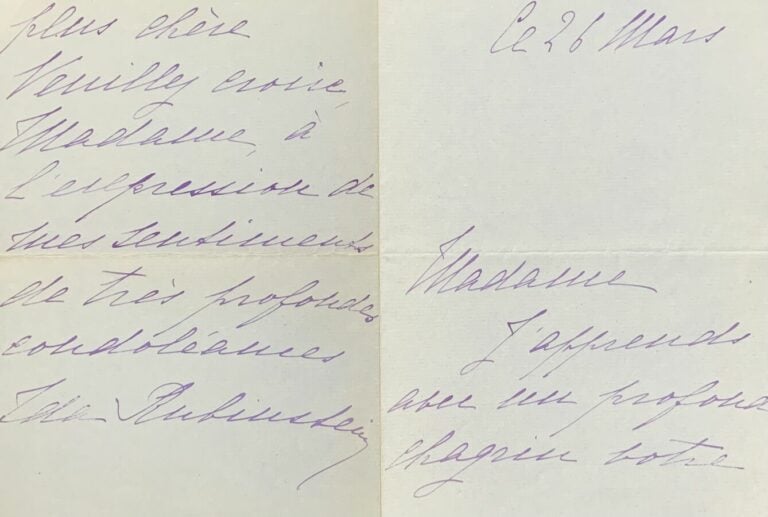 Ce 26 Mars
Madame
J'apprends
avec un profond
chagrin votre
plus chère
Veuillez croire,
Madame, à
l'expression de
mes sentiments
de très profondes
condoléances
Ida Rubinstein